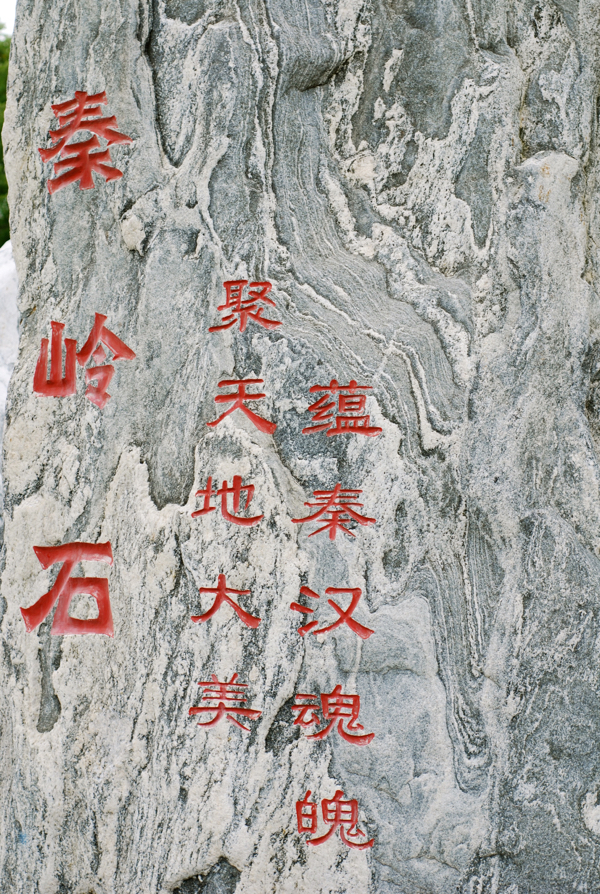 秦岭石
聚天地大美
蕴秦汉魂魄